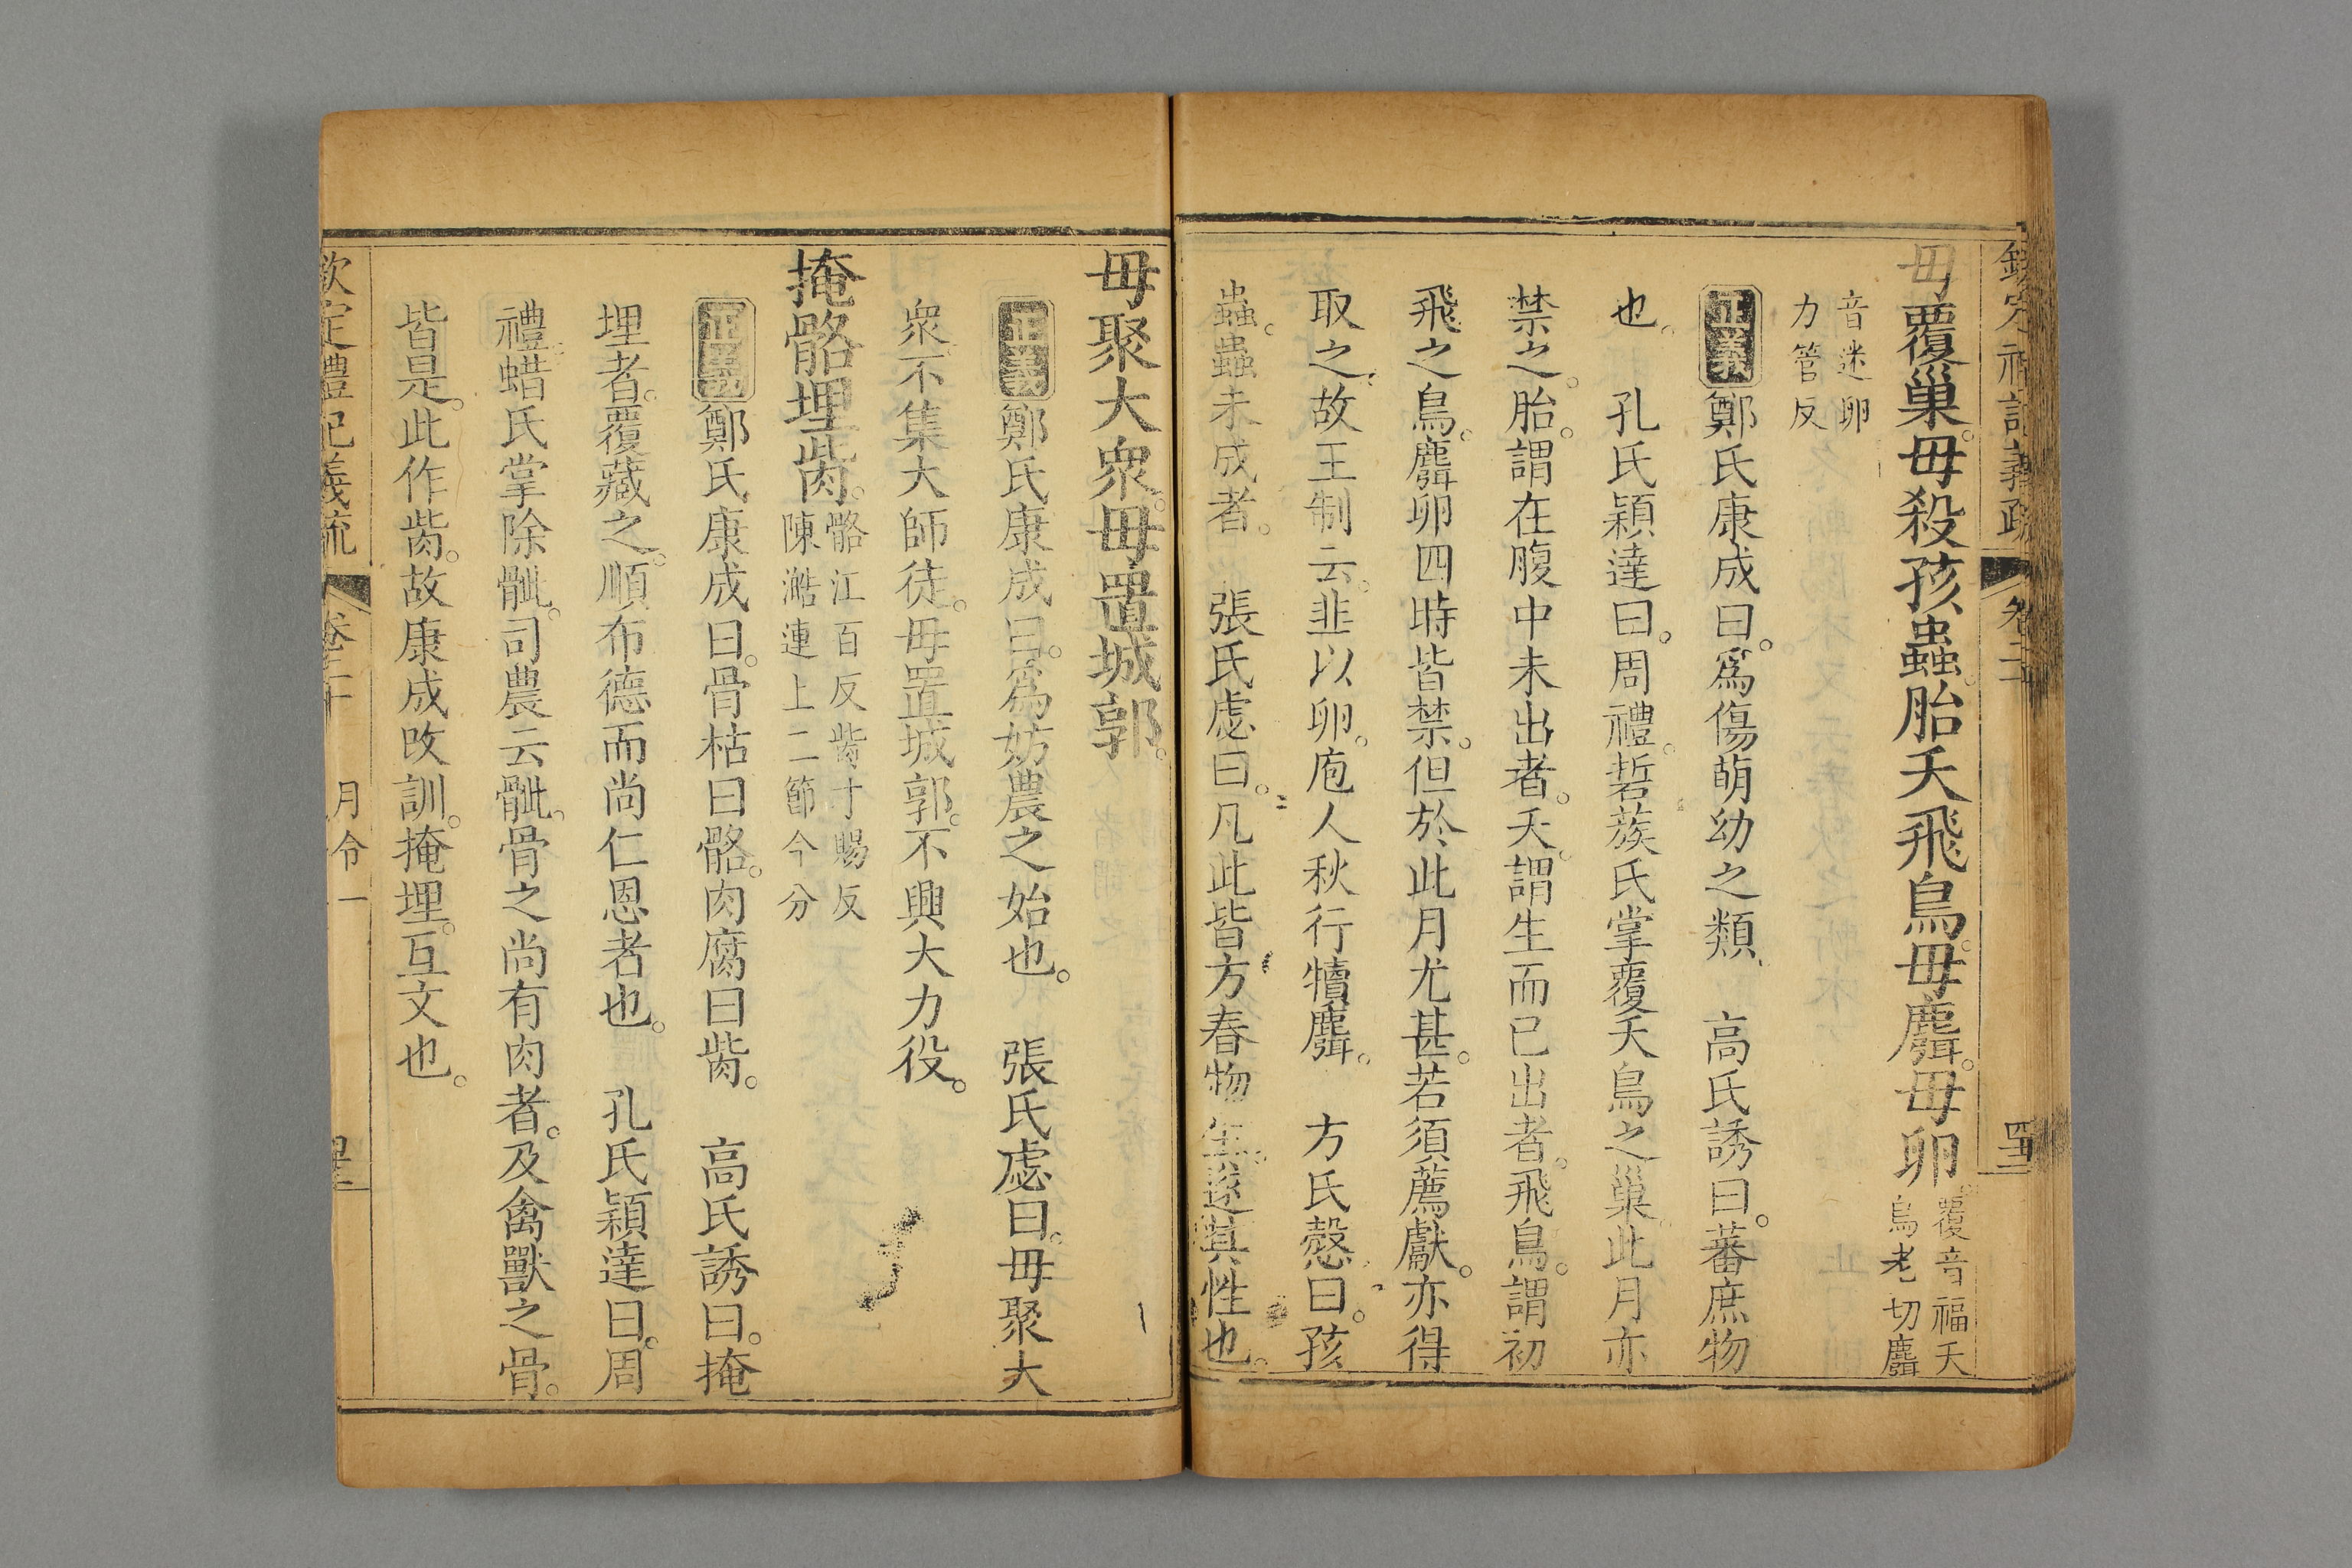 毋覆巢。毋殺孩蟲。胎夭飛鳥。毋麛。毋卵。覆音福夭烏老切麛
音迷卵力管反
正義鄭氏康成曰。爲傷萌幼之類 高氏誘曰。蕃庶物
也。 孔氏穎達曰。周禮。硩蔟氏掌覆夭鳥之巢。此月亦
禁之。胎。謂在腹中未出者。夭。謂生而已出者。飛鳥。謂初
飛之鳥。麛卵四時皆禁。但於此月尤甚。若須薦獻。亦得
取之。故王制云。韭以卵。庖人秋行犢麛。 方氏慤曰。孩
蟲。蟲未成者。 張氏虙曰。凡此皆方春物生。遂其性也。
毋聚大衆。毋置城郭。
正義鄭氏康成曰。爲妨農之始也。 張氏虙曰。毋聚大
衆不集大師徒。毋置城郭。不興大力役。
掩骼埋胔。骼江百反胔才賜反陳澔連上二節今分
正義鄭氏康成曰。骨枯曰骼。肉腐曰胔。 高氏誘曰。掩
埋者。覆藏之。順布德而尚仁恩者也。 孔氏穎達曰。周
禮蜡氏掌除骴。司農云骴。骨之尚有肉者。及禽獸之骨。
皆是。此作胔。故康成改訓。掩埋。互文也。
欽定禮記義疏 卷二十 月令一